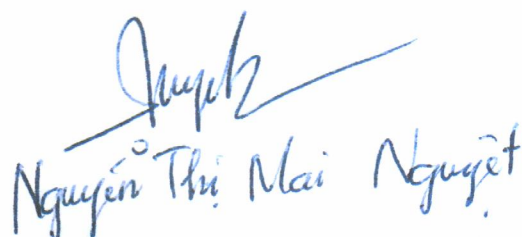 Nguyễn Thị Mai Nguyệt